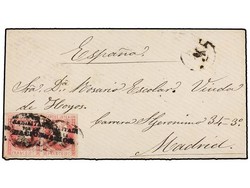 España.
Sra. Dª Rosario Escolar Viuda
de Hoyos.
Carrera Sn Geronimo 34-3º
Madrid.